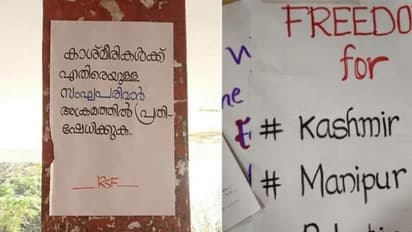 കാശ്മീരികൾക്ക്
എതിരെയുള്ള
സംഘപരിവാർ
അക്രമത്തിൽ പ്രതി-
ഷേധിക്കുക.
RSF
FREEDO
for
# Kashmir
# Manipur